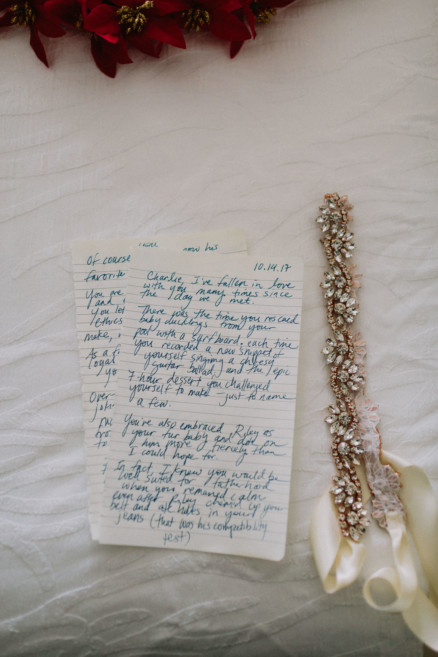 now has
Of course
favorite
You
and
You let
make,
As a
loyal
Over
10.14.17
Charlie, I've fallen in love
with you many times since
the day we met.
There was the time you rescued
baby ducklings from your
pool with a surfboard, each time
you recorded a new snippet of
yourself singing a cheesy
guitar ballad, and the epic
7-hour dessert you challenged
yourself to make - just to name
a few.
You've also embraced Riley as
your fur baby and dote on
him more fiercely than
I could hope for.
In fact, I knew you would be
well suited for fatherhood
when you remained calm
even after Riley chewed up your
belt and ate holes in your
jeans (that was his compatibility
test)